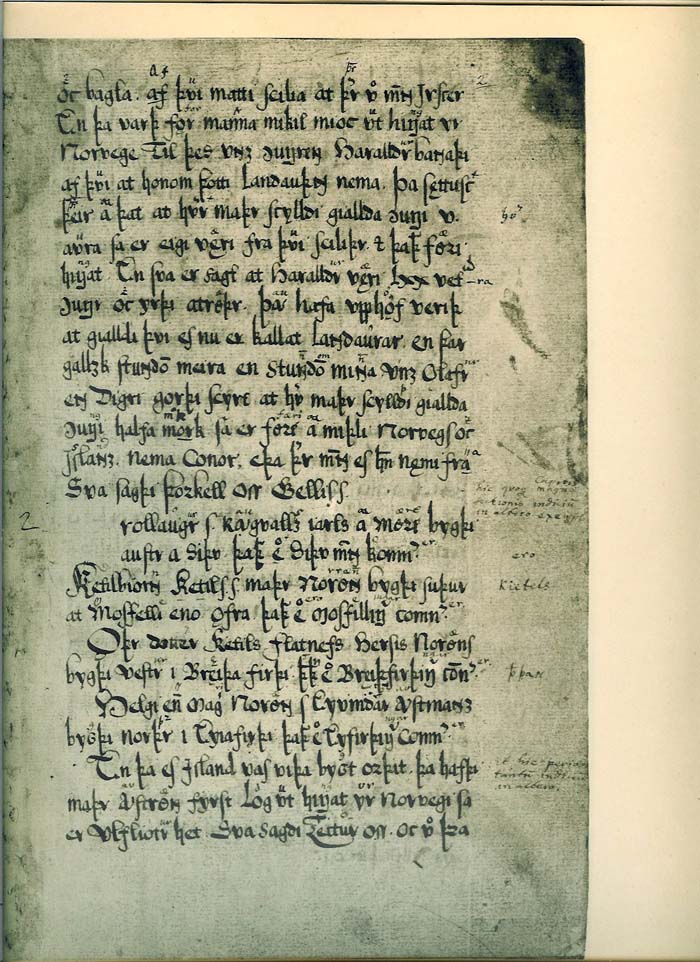 oc bagla. af þvi matti scilia at þr vo mn Irscer
En þa varþ for manna mikil mioc vt hingat vr
Norvege Til þes vnz cungren Haralldr bannaþi
af þvi at honom þotti Landauþn nema. Þa settusc
þeir a þat at hver maþr scylldi giallda cungi v.
aura sa er eigi veri fra þvi scilþr. & þaþ fori
hingat. En sva er sagt at Haralldr veri lxx vet-ra
cungr oc yrþi atroþr. Þau hafa vpphof verit
at gialldi þvi es nu er kallat Landaurar. en þar
gallzk stundom meira en Stundom minna vnz Olafr
en Digri gorþi scyrt at hver maþr scylldi giallda
cungi halfa mork sa er fori a miþli Norvegs oc
Islanz. nema Conor. eþa þr mn es hn nemi fra
Sva sagþi þorkell oss Gellis s.
rollaugr s Ragvallz iarls a Mori bygþi
austr a Siþu. þaþ ero Siþu mn komner.
Ketilbiorn Ketils s. maþr Norron bygþi suþur
at Mosfelli eno ofra þaþ ero Mosfellingar comner.
Oþr dotter Ketils flatnefs Hersis Norrons
bygþi vestr i Breiþa firþi. þþ ero Breiþfirþingar comner.
Helgi enn Magri Norron s Eyvindar Austmanz
bygþi norþr i Eyiafirþi þaþ ero Eyfirþingar comner.
En þa es Island vas viþa bygt orþit. þa hafþi
maþr Austronn fyrst log vt hingat vr Norvegi sa
er Vlfliotr het. Sva sagdi Teitur oss. oc vo þa